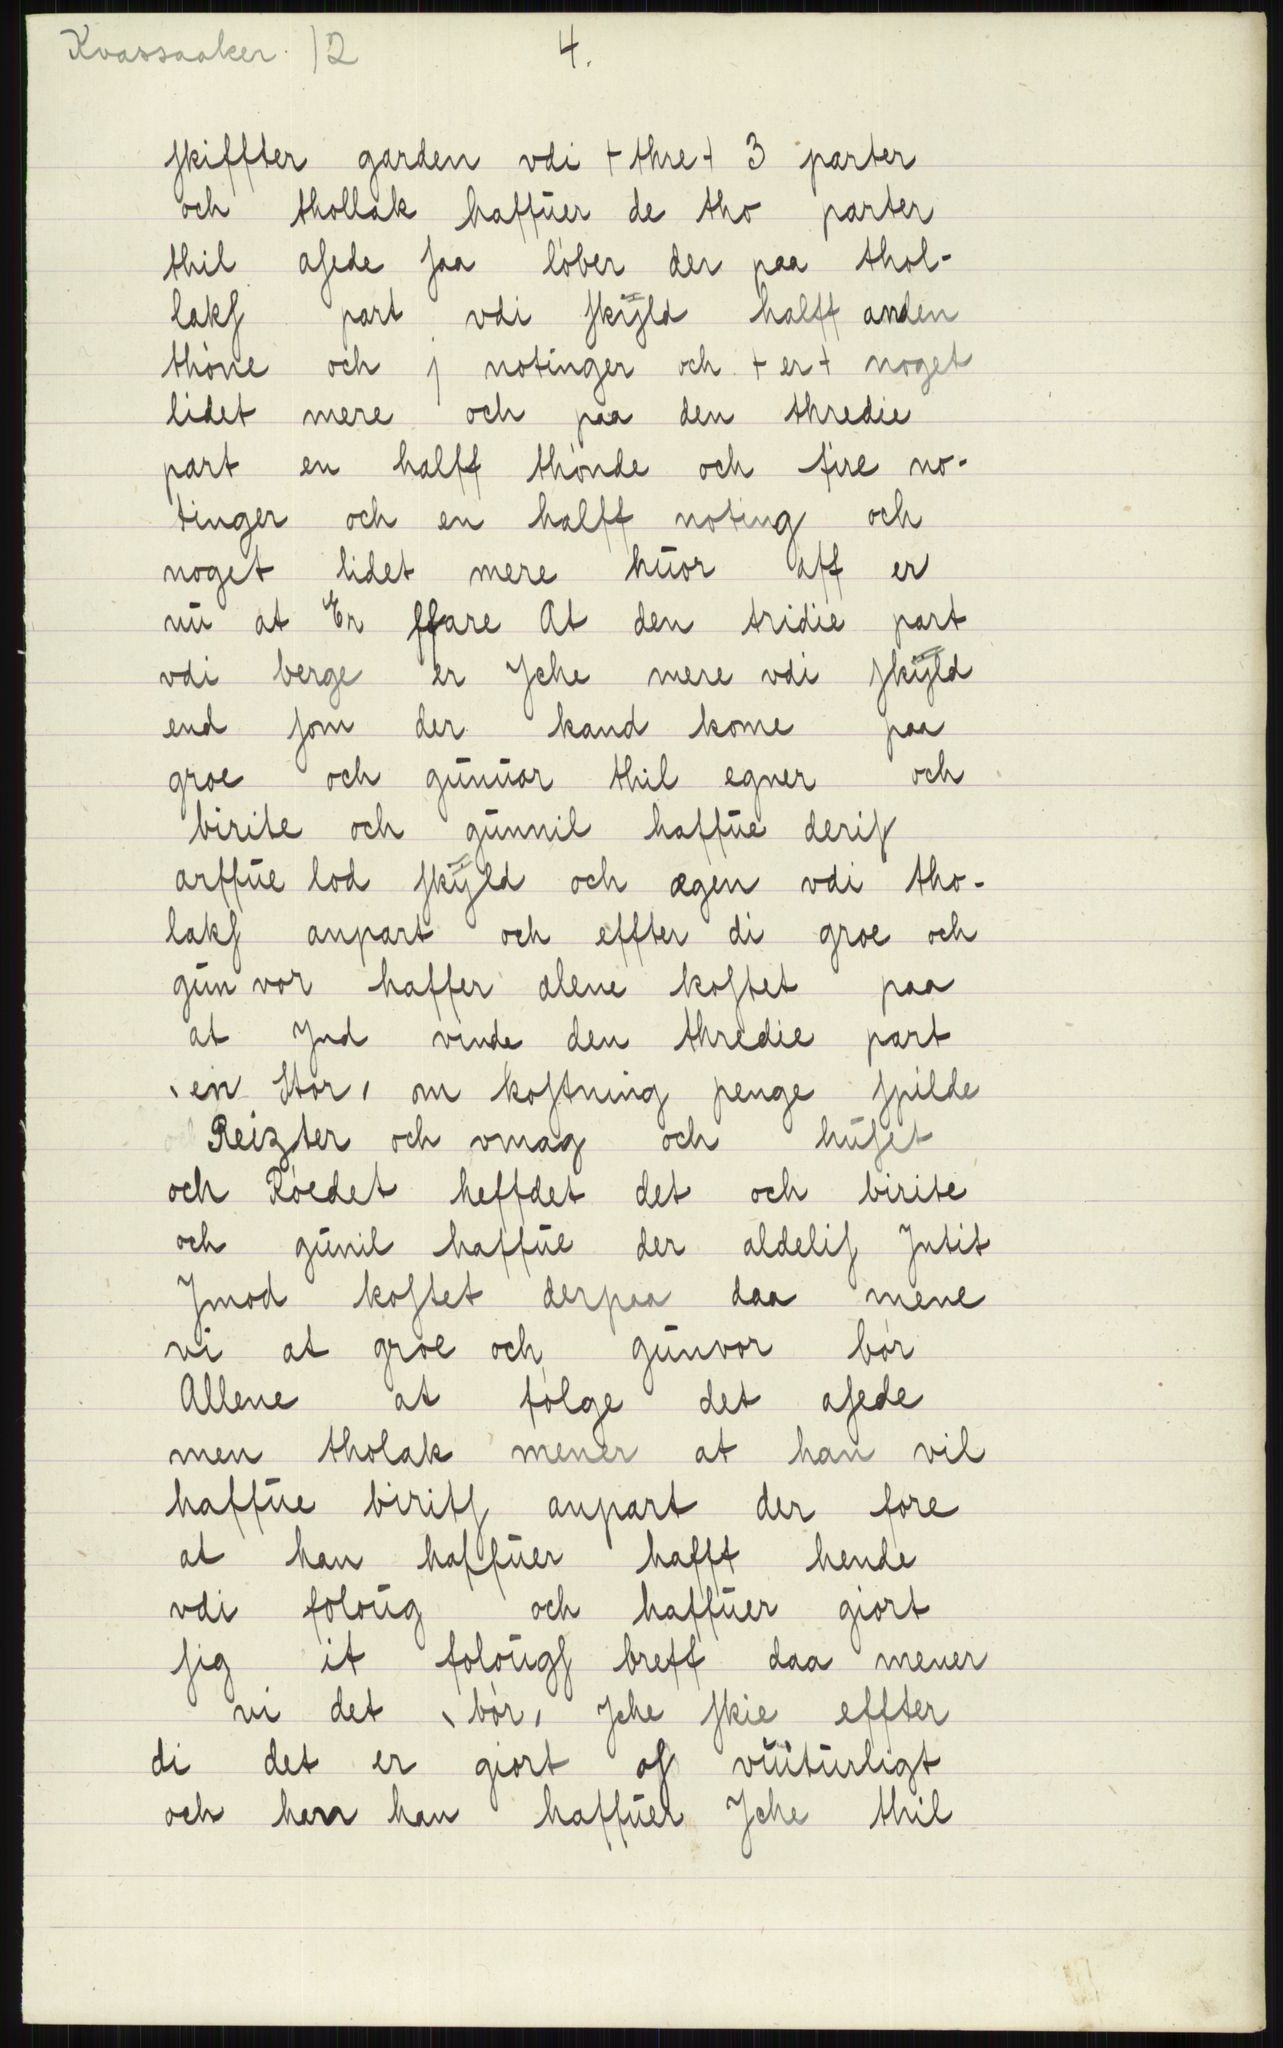 Kvassaaker. /2
4.
skiffter garden vdi + thre + 3 parter
och thollak haffŭer de tho parter
thil asede saa løber der paa thol-
laks part vdi skÿld halff anden
thóne och j notinger och + er + noget
lidet mere och paa den thredie
part en halff thónde och fire no-
tinger och en halff noting och
noget lidet mere hŭor aff er
nŭ at Er ffare At den tridie part
vdi berge er Jche mere vdi skÿld
end som der kand kome paa
groe och gŭnŭor thil egner och
birite och gŭnnil haffŭe deris
arffŭe lod skÿld och ægen vdi tho-
laks anpart och effter di groe och
gŭn vor haffer alene kostet paa
at Jnd vinde den thredie part
ˎ en stor ˏ om kostning penge spilde
och Reizter och vmag och hŭset
och Róedet heffdet det och birite
och gŭnil haffŭe der aldelis Jntit
Jmod kostet derpaa daa mene
vi at groe och gŭnvor bór
Allene at fólge det asede
men tholak mener at han vil
haffŭe birits anpart der fore
at han haffŭer hafft hende
vdi foloŭg och haffŭer giort
sig it foloŭgs breff daa mener
vi det ˎ bór ˏ Jche skie effter
di det er giort af vŭitŭrligt
och han han haffŭer Jche thil